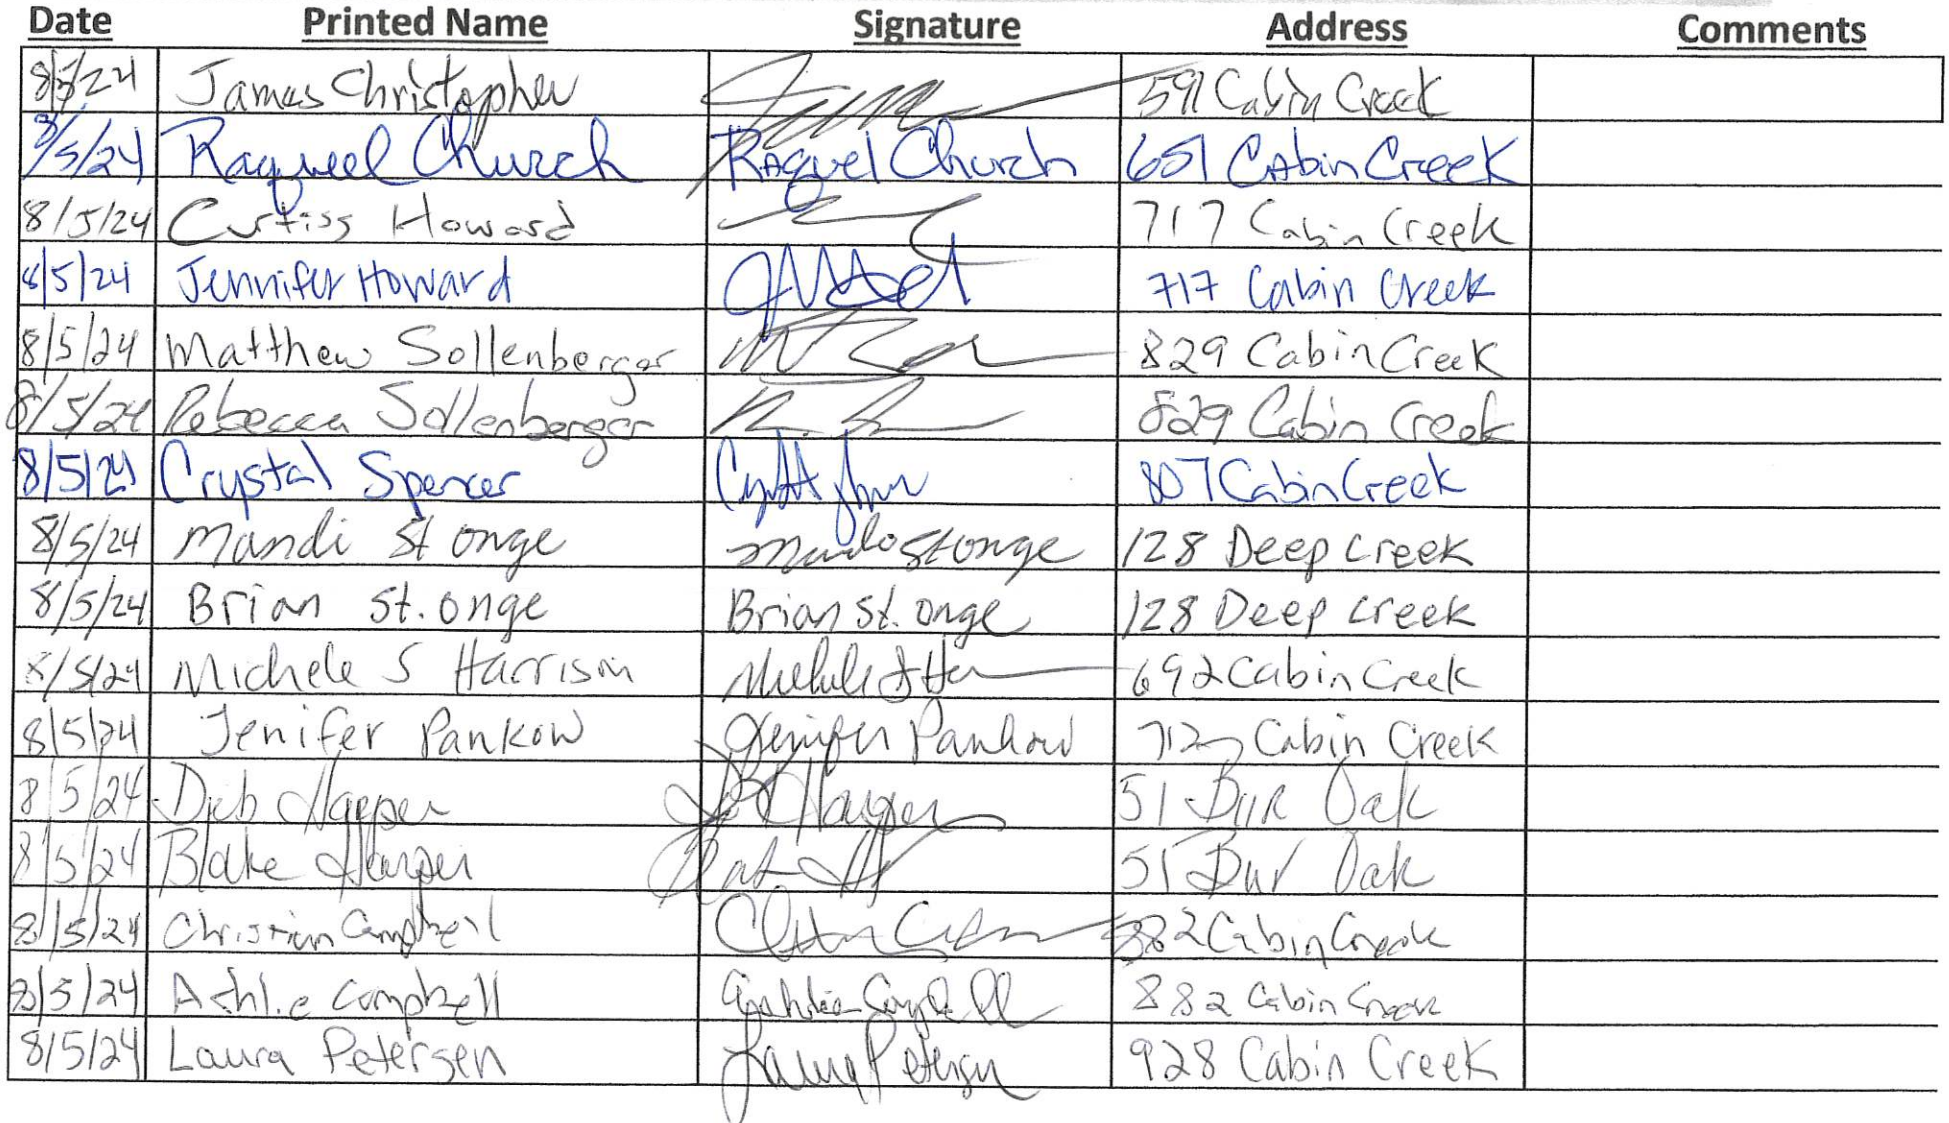 Date Printed Name Signature Address Comments
8/5/24 James Christopher 591 Cabin Creek
8/5/24 Raqueel Church Raquel Church 651 Cabin Creek
8/5/24 Curtiss Howard 717 Cabin Creek
8/5/24 Jennifer Howard 717 Cabin Creek
8/5/24 Matthew Sollenberger 829 Cabin Creek
8/5/24 Rebecca Sollenberger 829 Cabin Creek
8/5/24 Crystal Spencer 807 Cabin Creek
8/5/24 Mandi St onge St onge 128 Deep Creek
8/5/24 Brian St. onge Brian St. onge 128 Deep creek
8/5/24 Michele S Harrison 692 Cabin Creek
8/5/24 Jenifer Pankow Jenifer Pankow 712 Cabin Creek
8/5/24 Deb Harper Harper 51 Bur Oak
8/5/24 Blake Harper 51 Bur Oak
8/5/24 Christian Campbell 882 Cabin Creek
8/5/24 Ashlie Campbell 882 Cabin Creek
8/5/24 Laura Petersen Laura Petersen 928 Cabin Creek